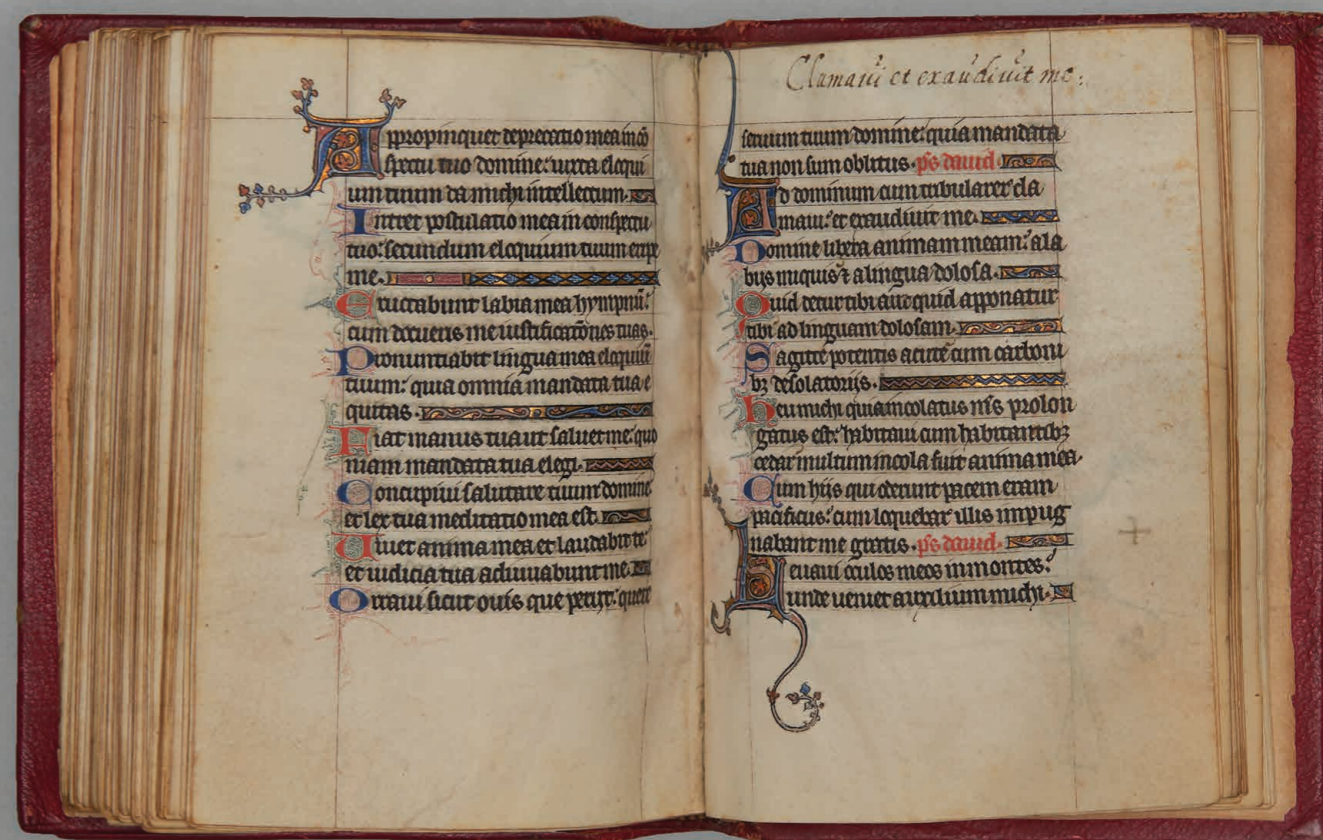 Appropinquet deprecatio mea in cõ
spectu tuo domine: iuxta eloqui
um tuum da michi intellectum.
Intret postulatio mea in conspectu
tuo: secundum eloquium tuum eripe
me.
Eructabunt labia mea hympnũ:
cum docueris me iustificatõnes tuas.
Pronuntiabit lingua mea eloquiũ
tuum: quia omnia mandata tua e
quitas.
Fiat manus tua ut saluet me: quo
niam mandata tua elegi.
Concupiui salutare tuum domine
et lex tua meditatio mea est.
Uiuet anima mea et laudabit te:
et iudicia tua adiuuabunt me.
Erraui sicut ouis que periit: quere
Clamaui et exaudiuit me:
seruum tuum domine: quia mandata
tua non sum oblitus. p̃s dauid.
Ad dominum cum tribularer cla
maui: et exaudiuit me.
Domine libera animam meam: a la
bijs iniquis ⁊ a lingua dolosa.
Quid detur tibi aut quid apponatur
tibi ad linguam dolosam.
Sagitte potentis acute cum carboni
bꝫ desolatorijs.
Heu michi quia incolatus m̃s prolon
gatus est: habitaui cum habitantibꝫ
cedar multum incola fuit anima mea.
Cum hiis qui oderunt pacem eram
pacificus: cum loquebar illis impug
nabant me gratis. p̃s dauid.
Leuaui oculos meos in montes:
unde ueniet auxilium michi.